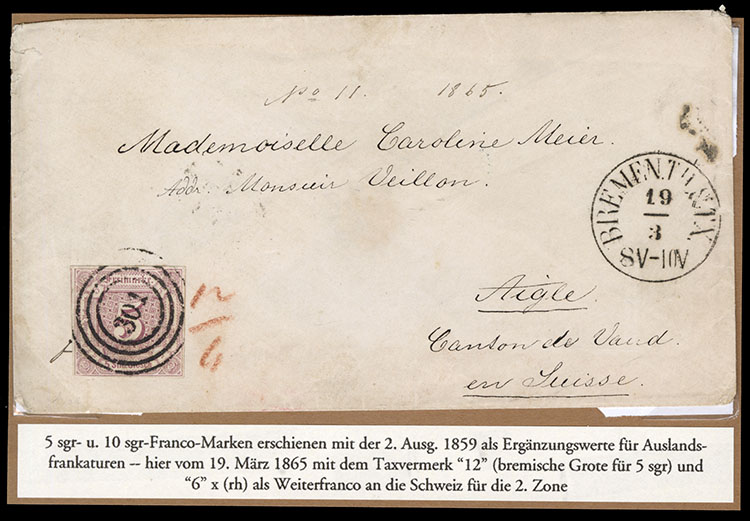 No 11. 1865.
Mademoiselle Caroline Meier.
Addr. Monsieur Veillon.
BREMEN. TH. & TAX.
19
3
8V-10V
301
12
6
Aigle.
Canton de Vaud.
en Suisse.
5 sgr- u. 10 sgr-Franco-Marken erschienen mit der 2. Ausg. 1859 als Ergänzungswerte für Auslands-
frankaturen -- hier vom 19. März 1865 mit dem Taxvermerk “12” (bremische Grote für 5 sgr) und
“6” x (rh) als Weiterfranco an die Schweiz für die 2. Zone